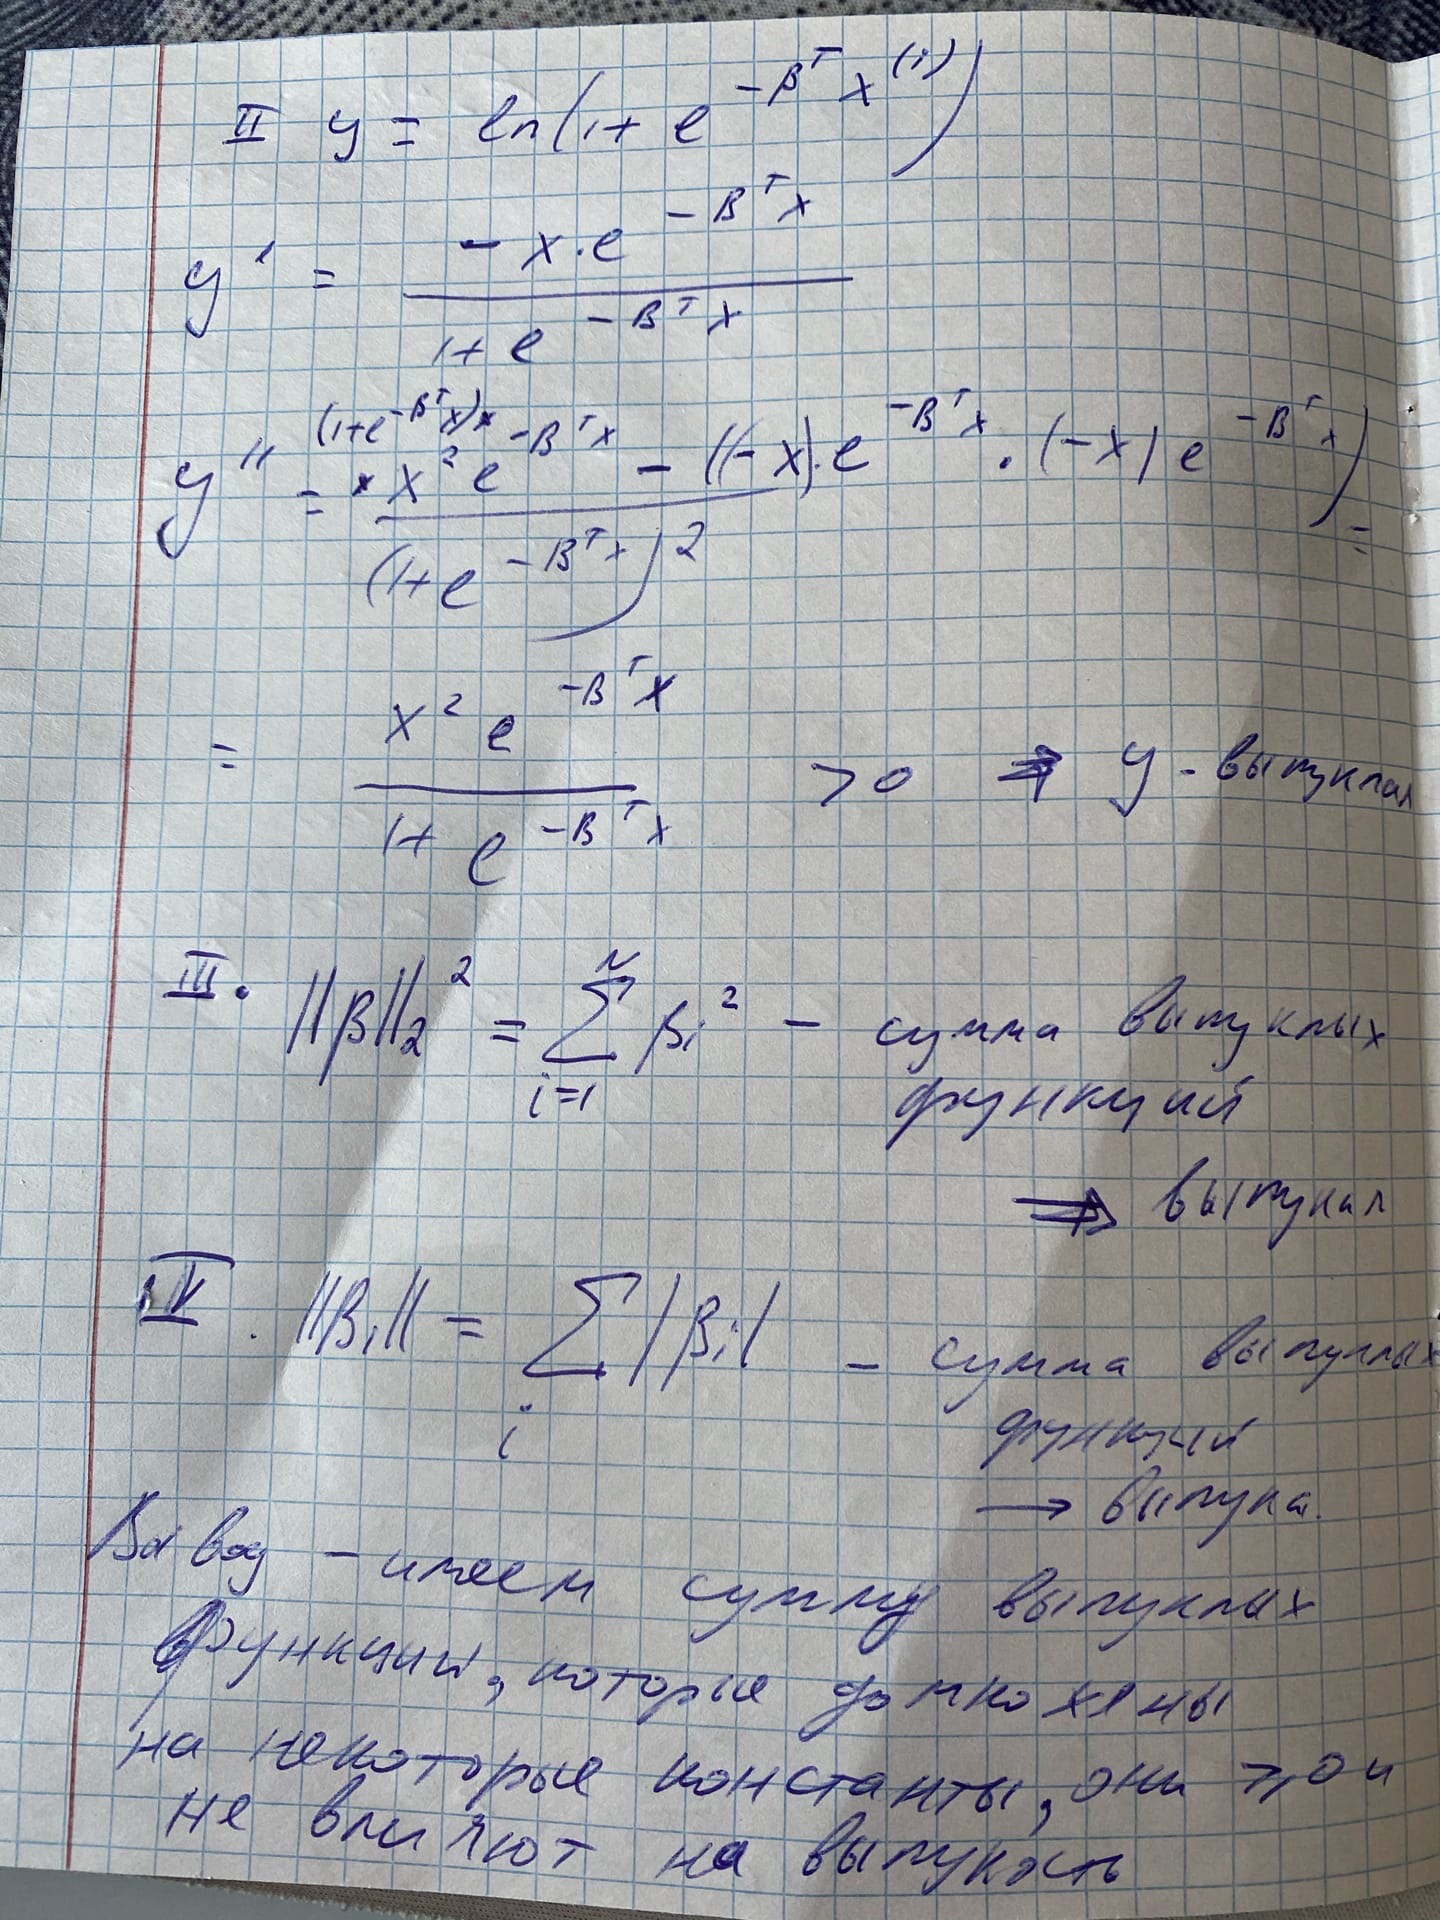 II y = ln(1+ e^{-β^T x^{(i)}})
y' = \frac{-x·e^{-β^T x}}{1+e^{-β^T x}}
y'' = \frac{(1+e^{-β^T x})* * x^2 e^{-β^T x} - ((-x)·e^{-β^T x}·(-x) e^{-β^T x})}{(1+e^{-β^T x})^2} =
= \frac{x^2 e^{-β^T x}}{1+ e^{-β^T x}} >0 ⇒ y - выпуклая
III. ||β||_2^2 = \sum_{i=1}^{N} β_i^2 - сумма выпуклых
функций
⇒ выпукл
IV. ||β_1|| = \sum_i |β_i| - сумма выпуклых
функций
→ выпукл.
Вывод - имеем сумму выпуклых
функций, которые домножены
на некоторые константы, они ≥0 и
не влияют на выпукость